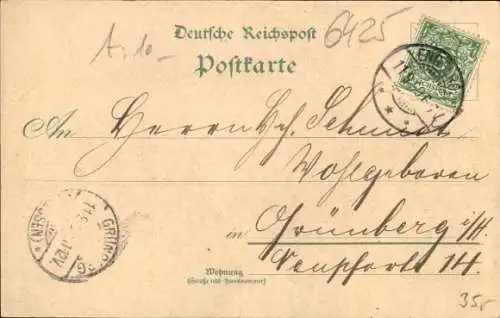 A. 10 —
6425
Deutsche Reichspost
Postkarte
An Herrn Hch. Schmidt
Wohlgeboren
in Grünberg i/H.
Neustadt 14.
Wohnung
(Straße und Hausnummer)
GRÜNBERG
(HESSEN)
35,-